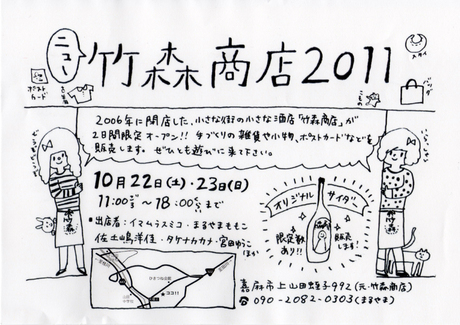 ニュー
竹森商店2011
スタイ
ポストカード
バッグ
2006年に閉店した、小さな街の小さな酒店「竹森商店」が
2日間限定オープン!! 手づくりの雑貨や小物、ポストカードなどを
販売します。ぜひとも遊びに来て下さい。
10月22日(土)・23日(日)
11:00から〜18:00くらいまで
・出店者:イマムラスミコ・まるやまももこ
佐土嶋洋佳・タケナカカナ・宮田ゆうこ
ほか
オリジナルサイダー
限定数あり!!
販売します!
ココ!!
嘉麻市上山田蛭子992(元・竹森商店)
090-2082-0303(まるやま)